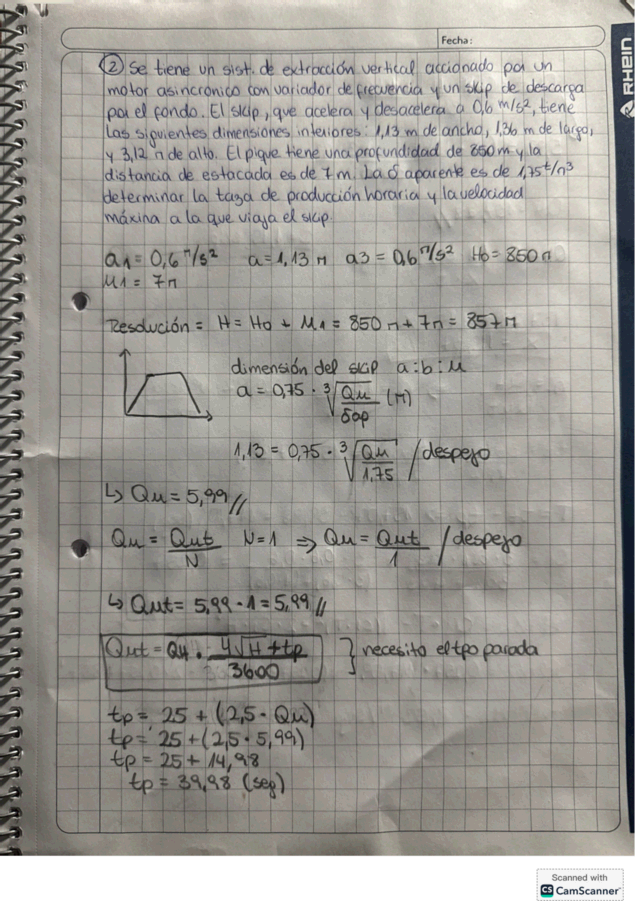 Fecha:
RHEIN
② Se tiene un sist. de extracción vertical accionado por un
motor asincronico con variador de frecuencia y un skip de descarga
por el fondo. El skip, que acelera y desacelera a 0,6 m/s², tiene
las siguientes dimensiones interiores: 1,13 m de ancho, 1,36 m de largo,
y 3,12 m de alto. El pique tiene una profundidad de 850 m y la
distancia de estacada es de 7 m. La δ aparente es de 1,75 t/m³
determinar la taza de producción horaria y la velocidad
máxima a la que viaja el skip.
a1 = 0,6 m/s² a = 1,13 m a3 = 0,6 m/s² Ho = 850 m
H1 = 7 m
Resolución = H = Ho + H1 = 850 m + 7 m = 857 m
dimensión del skip a : b : H
a = 0,75 · ∛(Qu/δap) (m)
1,13 = 0,75 · ∛(Qu/1,75) / despejo
↳ Qu = 5,99 //
Qu = Qut/N N = 1 ⇒ Qu = Qut/1 / despejo
↳ Qut = 5,99 · 1 = 5,99 //
Qut = QH · (4√H + tp)/3600 } necesito el tpo parada
tp = 25 + (2,5 · Qu)
tp = 25 + (2,5 · 5,99)
tp = 25 + 14,98
tp = 39,98 (seg)
Scanned with
CS CamScanner